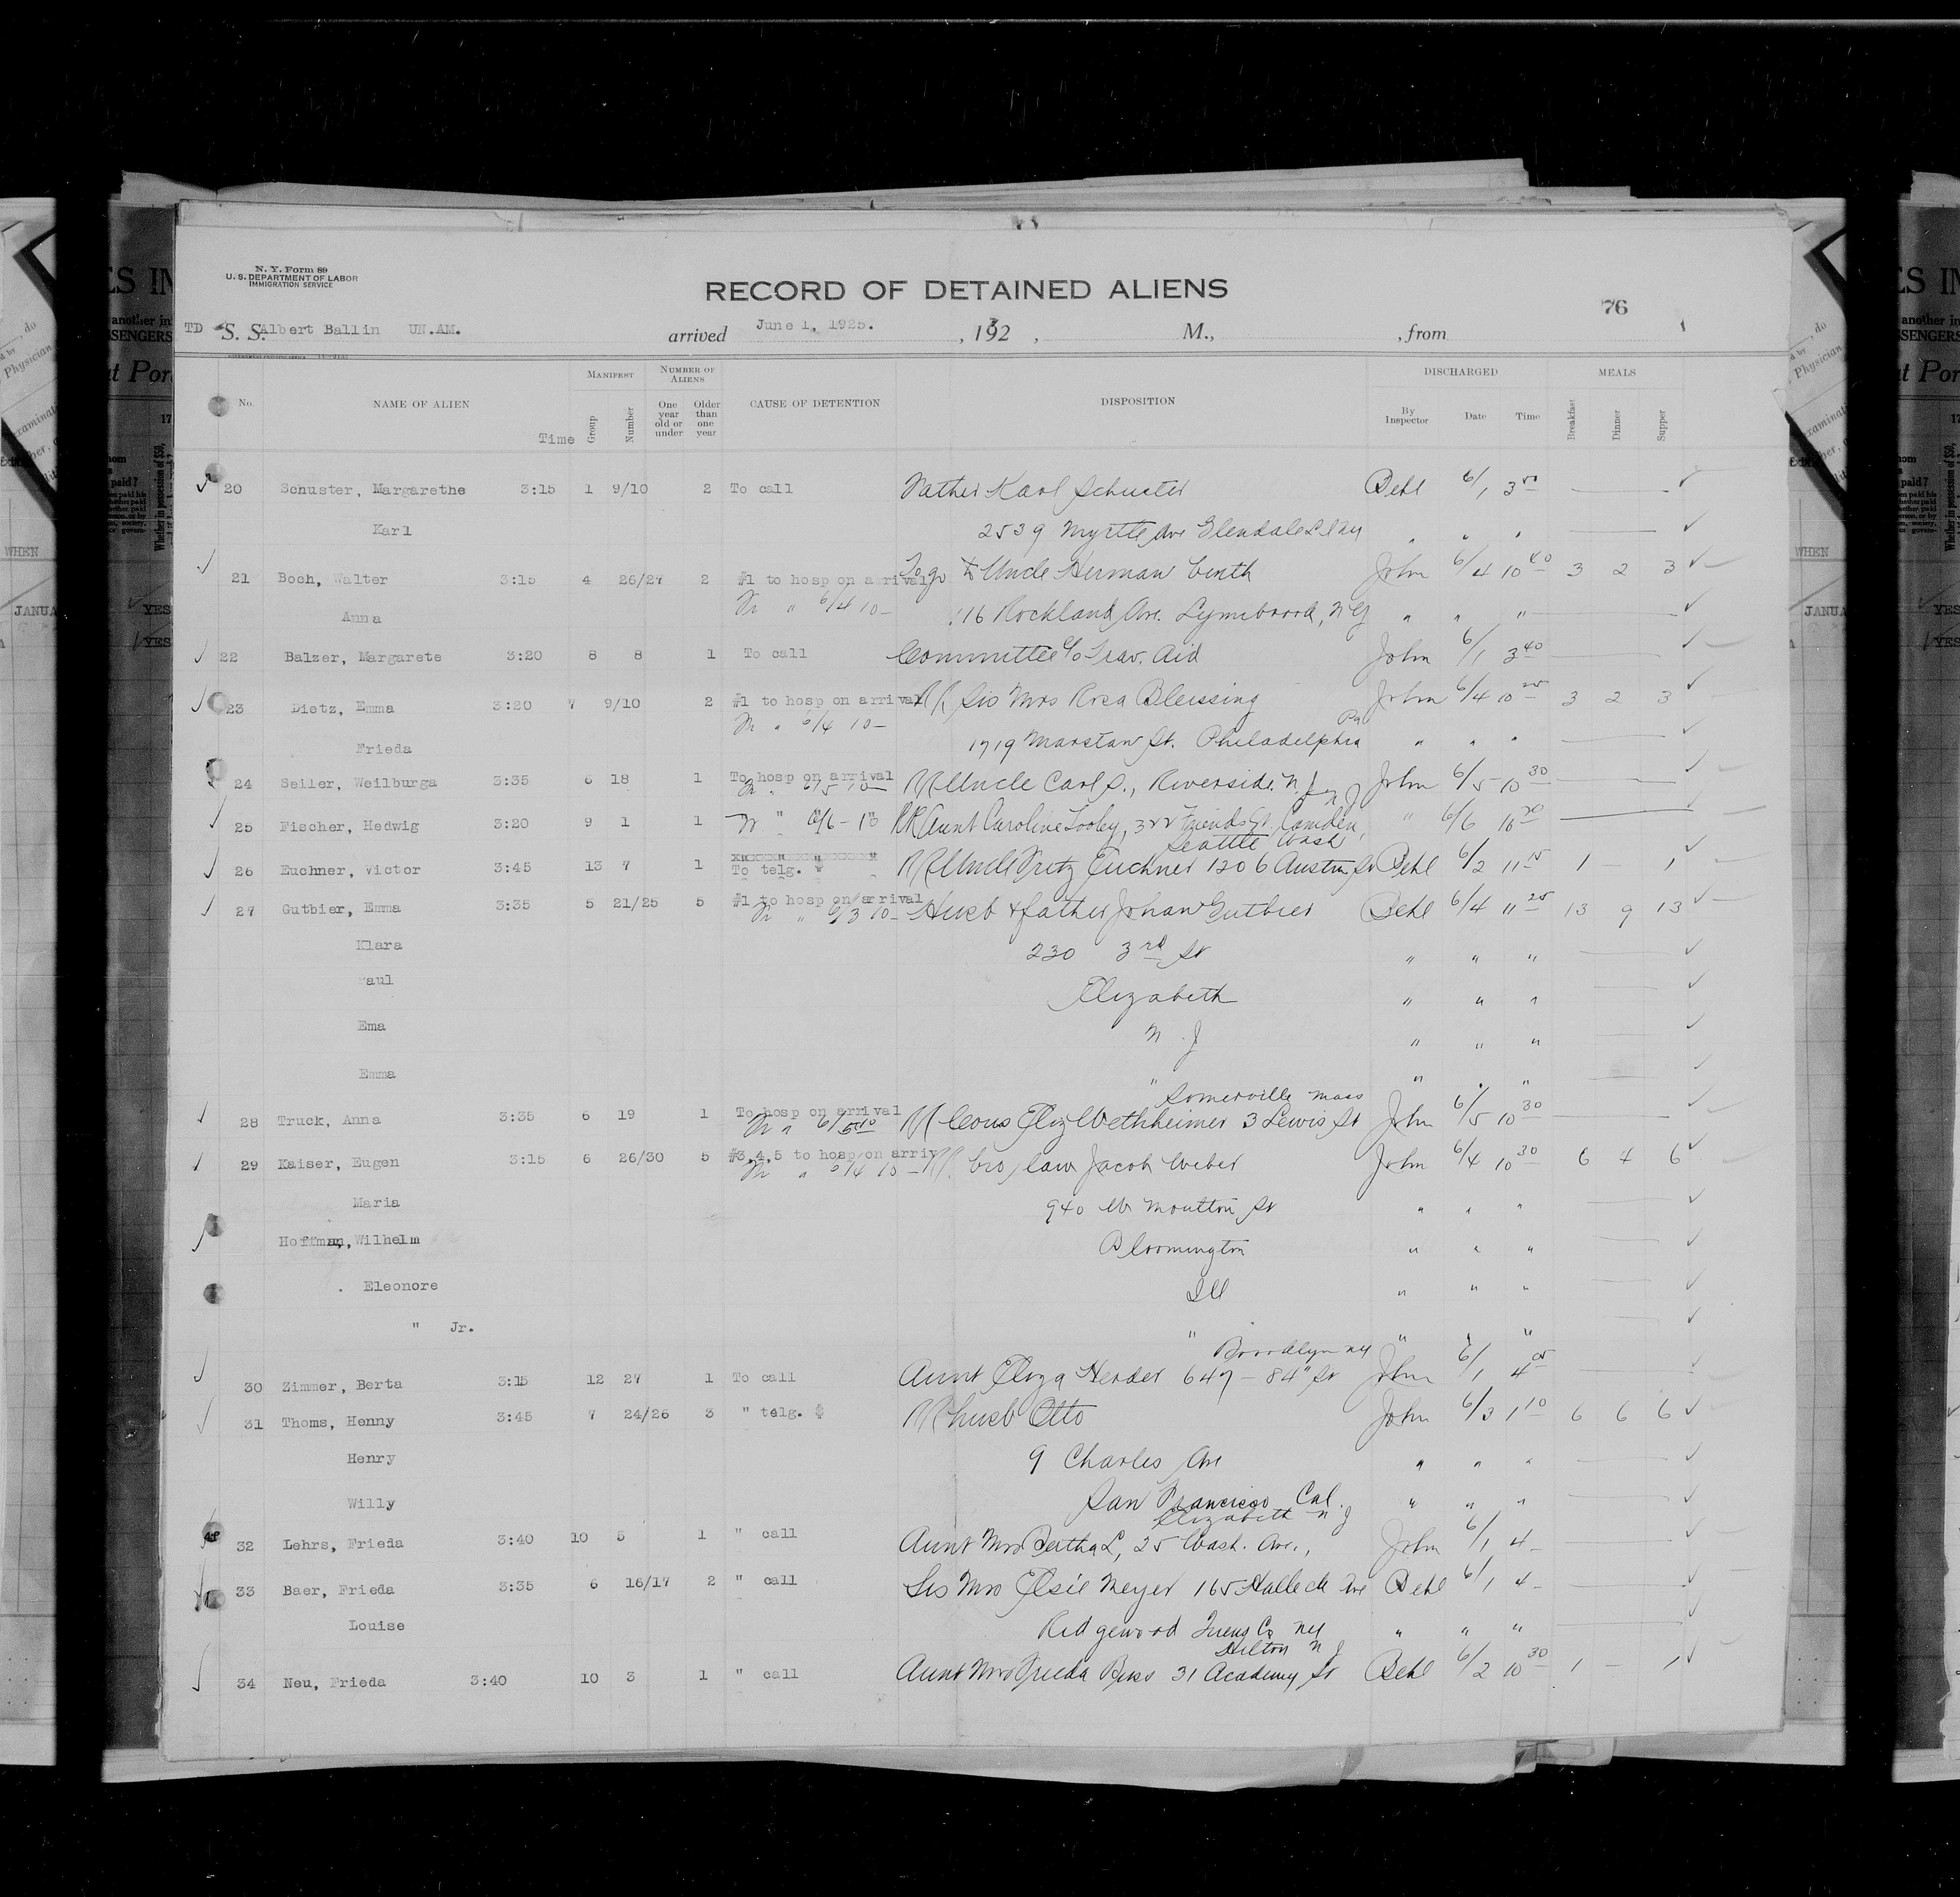 N. Y. Form 89
U. S. DEPARTMENT OF LABOR
IMMIGRATION SERVICE
RECORD OF DETAINED ALIENS
76
TD S. S. Albert Ballin UN.AM. arrived June 1, 1925. , 192 , M., , from
No. NAME OF ALIEN Time MANIFEST Group Number NUMBER OF ALIENS One year old or under Older than one year CAUSE OF DETENTION DISPOSITION DISCHARGED By Inspector Date Time MEALS Breakfast Dinner Supper
20 Schuster, Margarethe 3:15 1 9/10 2 To call Father Karl Schuster Behl 6/1 3 50
Karl 2539 Myrtle Ave Glendale L I NY " " "
21 Boch, Walter 3:15 4 26/27 2 #1 to hosp on arrival To go to Uncle Herman John 6/4 10 40 3 2 3
" 6/4 10-
Anna 116 Rockland Ave. Lynnbrook, NY " " "
22 Balzer, Margarete 3:20 8 8 1 To call Committee c/o Trav. Aid John 6/1 3 40
23 Dietz, Emma 3:20 7 9/10 2 #1 to hosp on arrival RR Sis Mrs Rosa Bleissing John 6/4 10 3 2 3
" 6/4 10- Pa
Frieda 1719 Marstan St. Philadelphia " " "
24 Seiler, Weilburga 3:35 6 18 1 To hosp on arrival RR Uncle Carl S., Riverside. N. J John 6/5 10 30
" 6/5 10- N J
25 Fischer, Hedwig 3:20 9 1 1 " 6/6 - RR Aunt Caroline Tooley, 322 Friends St, Camden, " 6/6 10 30
Seattle Wash
26 Euchner, Victor 3:45 13 7 1 To telg. RR Uncle Fritz Euchner 1206 Austin St Behl 6/2 11 15 1 - 1
27 Gutbier, Emma 3:35 5 21/25 5 #1 to hosp on arrival Husb & father Johan Gutbier Behl 6/4 11 25 13 9 13
" 6/3 10-
Klara 230 3rd St " " "
Paul Elizabeth " " "
Ema N. J " " "
Emma " " " "
Somerville Mass
28 Truck, Anna 3:35 6 19 1 To hosp on arrival RR Cous Eliz Wethheimer 3 Lewis St John 6/5 10 30
29 Kaiser, Eugen 3:15 6 26/30 5 #3,4,5 to hosp on arriv RR bro/law Jacob Weber John 6/4 10 30 6 4 6
" 6/4 10-
Maria 940 W Moulton St " " "
Hoffman, Wilhelm Bloomington " " "
. Eleonore Ill " " "
" Jr. " " " "
Brooklyn NY
30 Zimmer, Berta 3:15 12 27 1 To call Aunt Eliza Herder 647 - 84" St John 6/1 4 05
31 Thoms, Henny 3:45 7 24/26 3 " telg. RR husb Otto John 6/3 1 10 6 6 6
Henry 9 Charles Ave " " "
Willy San Francisco Cal. " " "
Elizabeth N J
32 Lehrs, Frieda 3:40 10 5 1 " call Aunt Mrs Bertha L, 25 Wash. Ave., John 6/1 4-
33 Baer, Frieda 3:35 6 16/17 2 " call Sis Mrs Elsie Meyer 165 Halleck Ave Behl 6/1 4-
Louise Ridgewood Queens Co NY " " "
Hilton N J
34 Neu, Frieda 3:40 10 3 1 " call Aunt Mrs Frieda 31 Academy St Behl 6/2 10 30 1 - 1